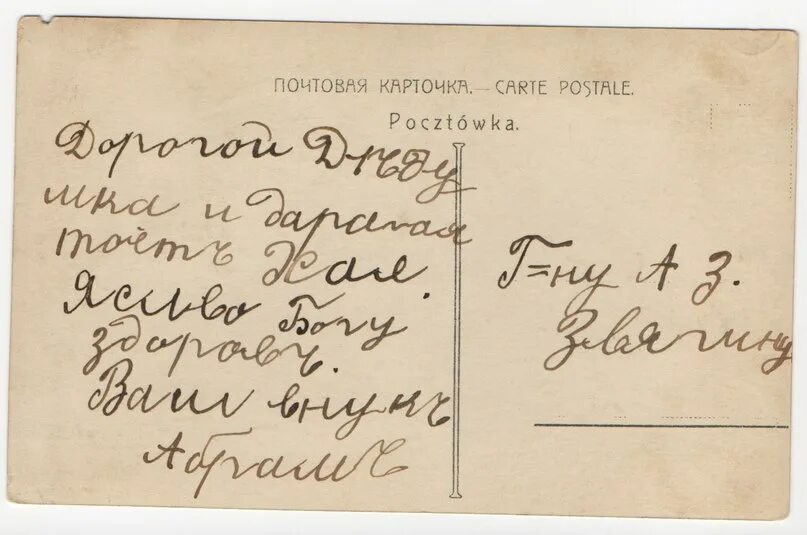 ПОЧТОВАЯ КАРТОЧКА. — CARTE POSTALE.
Pocztówka.
Дорогой Дѣду
шка и дарагая
тоётъ Хая.
Я славо Богу
здоровъ.
Вашъ внукъ
Абрамъ
Г=ну А З.
Звягину